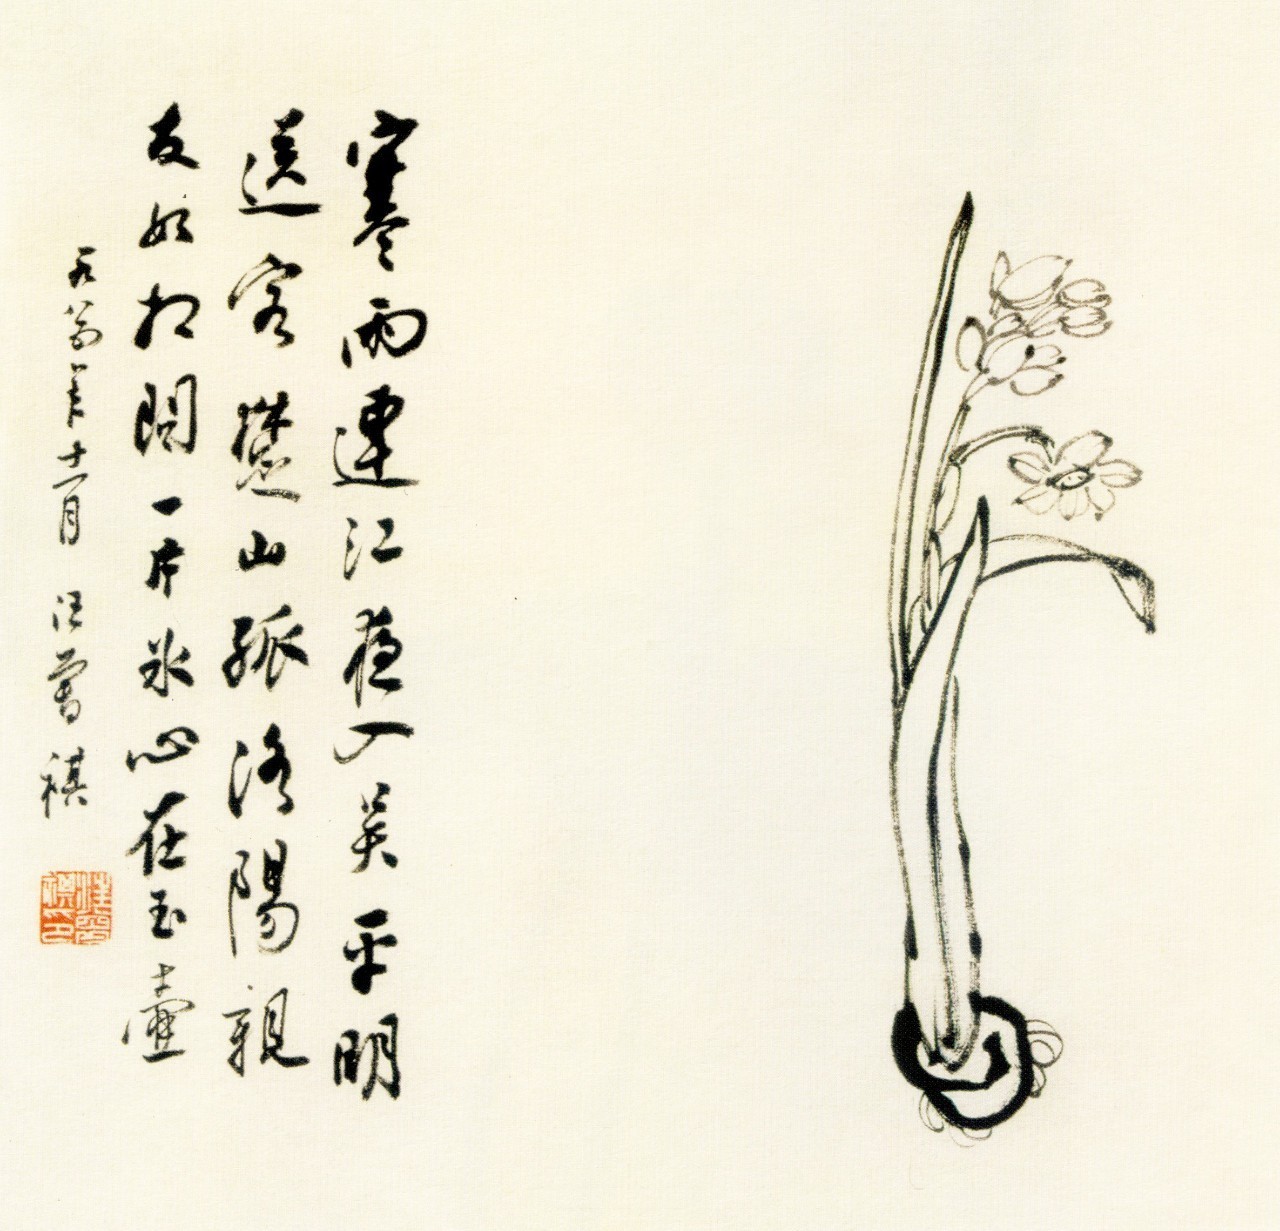 寒雨連江夜入吴平明
送客楚山孤洛陽親
友如相問一片冰心在玉壺
年十一月 汪曾祺
汪曾祺印